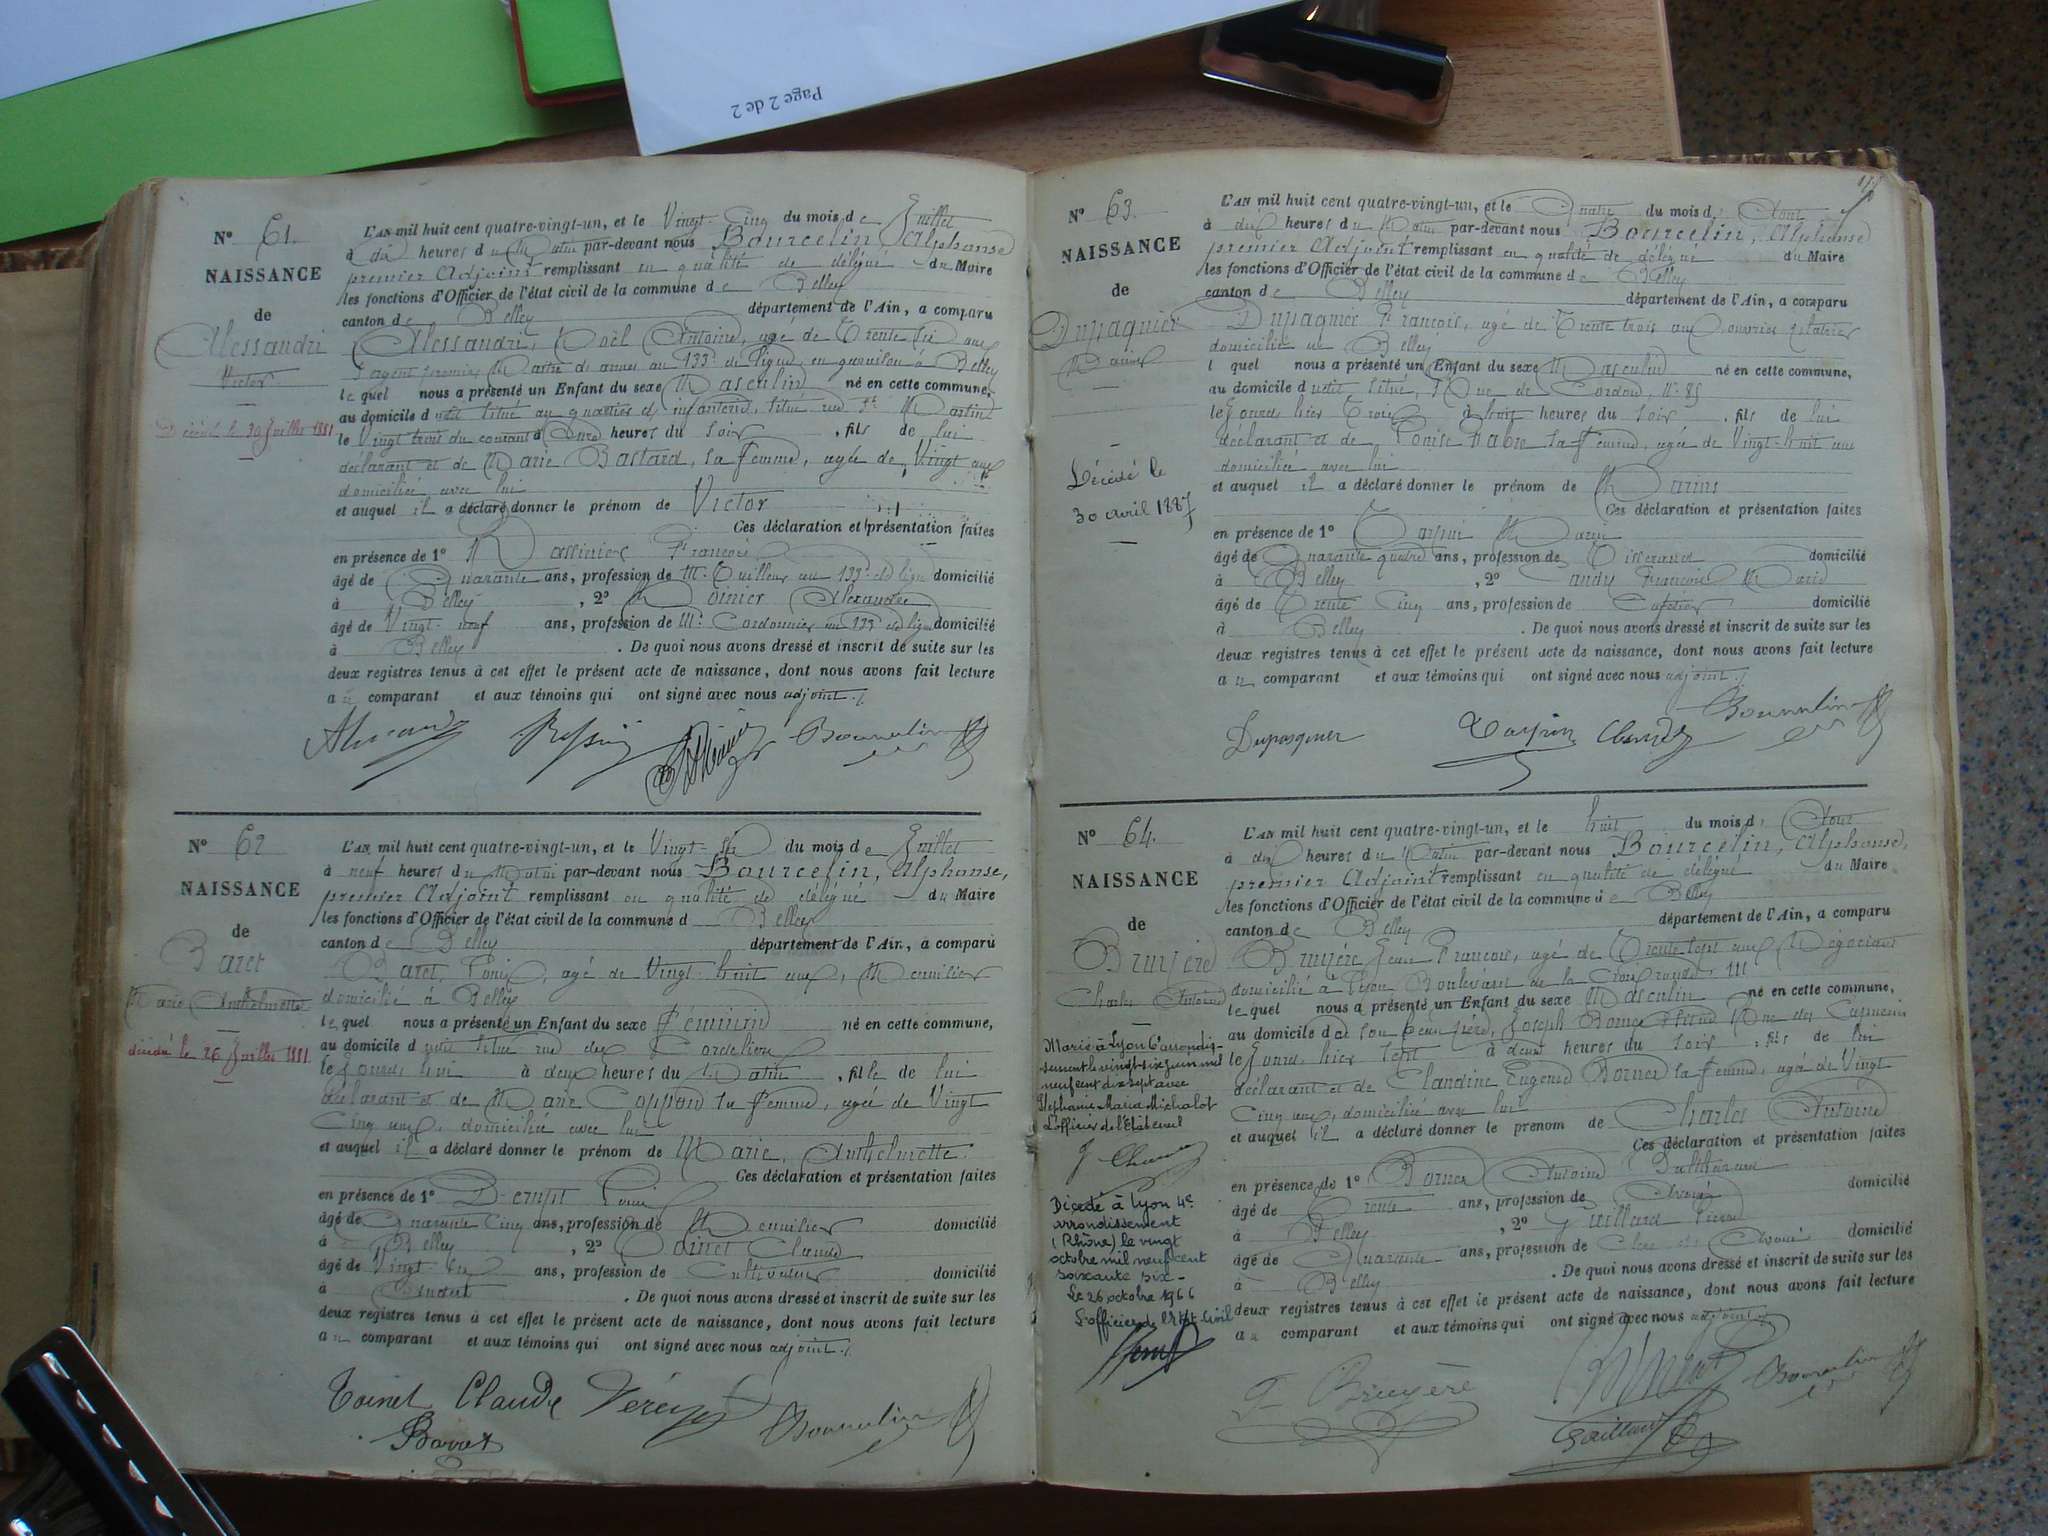 Page 2 de 2
N° 61.
NAISSANCE
de
Alessandri
Victor
Décédé le 30 Juillet 1881
L'AN mil huit cent quatre-vingt-un, et le Vingt-Cinq du mois de Juillet
à dix heures du Matin par-devant nous Bourcelin, Alphonse
premier Adjoint remplissant en qualité de délégué du Maire
les fonctions d'Officier de l'état civil de la commune de Belley
canton de Belley département de l'Ain, a comparu
Alessandri, Noël Antoine, agé de Trente six ans
Sergent premier Maitre d'armes au 133e de ligne, en garnison à Belley
lequel nous a présenté un Enfant du sexe Masculin né en cette commune,
au domicile dudit situé au quartier d'infanterie, situé rue St Martin
le Vingt trois du courant à onze heures du soir, fils de lui
déclarant et de Marie Bastard, sa femme, agée de Vingt ans
domiciliée avec lui
et auquel il a déclaré donner le prénom de Victor
Ces déclaration et présentation faites
en présence de 1° Rassinier François
âgé de Quarante ans, profession de M. Tailleur au 133e de ligne domicilié
à Belley, 2° Alexandre
âgé de Vingt-neuf ans, profession de M. Cordonnier au 133 de ligne domicilié
à Belley. De quoi nous avons dressé et inscrit de suite sur les
deux registres tenus à cet effet le présent acte de naissance, dont nous avons fait lecture
au comparant et aux témoins qui ont signé avec nous adjoint.
Bourcelin
N° 62
NAISSANCE
de
Baret
Marie Anthelmette
décédée le 26 Juillet 1881
L'AN mil huit cent quatre-vingt-un, et le Vingt-six du mois de Juillet
à neuf heures du Matin par-devant nous Bourcelin, Alphonse,
premier Adjoint remplissant en qualité de délégué du Maire
les fonctions d'Officier de l'état civil de la commune d Belley
canton de Belley département de l'Ain, a comparu
Baret Louis, agé de Vingt huit ans, Menuisier
domicilié à Belley
lequel nous a présenté un Enfant du sexe Féminin né en cette commune,
au domicile dudit situé rue des Cordeliers
le Jourd'hui à deux heures du Matin, fille de lui
déclarant et de Marie Coppon sa femme, agée de Vingt
Cinq ans, domiciliée avec lui
et auquel il a déclaré donner le prénom de Marie, Anthelmette.
Ces déclaration et présentation faites
en présence de 1° Louis
âgé de Quarante Cinq ans, profession de Menuisier domicilié
à Belley, 2° Toinet Claude
âgé de Vingt-six ans, profession de Cultivateur domicilié
à Andert. De quoi nous avons dressé et inscrit de suite sur les
deux registres tenus à cet effet le présent acte de naissance, dont nous avons fait lecture
au comparant et aux témoins qui ont signé avec nous adjoint.
Toinet Claude
Bourcelin
Barret
N° 63.
NAISSANCE
de
Dupasquier
Marius
Décédé le
30 avril 1887
L'AN mil huit cent quatre-vingt-un, et le Quatre du mois d'Aout
à dix heures du Matin par-devant nous Bourcelin, Alphonse
premier Adjoint remplissant en qualité de délégué du Maire
les fonctions d'Officier de l'état civil de la commune de Belley
canton de Belley département de l'Ain, a comparu
Dupasquier François, agé de Trente trois ans, ouvrier
domicilié à Belley
lequel nous a présenté un Enfant du sexe Masculin né en cette commune,
au domicile dudit situé, Rue de Cordon, N° 85
le Jourd'hier Trois à huit heures du soir, fils de lui
déclarant et de Louise Fabre sa femme, agée de Vingt-huit ans
domiciliée avec lui
et auquel il a déclaré donner le prénom de Marius
Ces déclaration et présentation faites
en présence de 1° Marin
âgé de Quarante quatre ans, profession de Tisserand domicilié
à Belley, 2° François Marie
âgé de Trente Cinq ans, profession de Cafetier domicilié
à Belley. De quoi nous avons dressé et inscrit de suite sur les
deux registres tenus à cet effet le présent acte de naissance, dont nous avons fait lecture
au comparant et aux témoins qui ont signé avec nous adjoint.
Dupasquier
Bourcelin
N° 64.
NAISSANCE
de
Bruyère
Charles Antoine
Marié à Lyon 6e arrondis-
sement le vingt-six juin mil
neuf cent dix sept avec
Stéphanie Maria Michalot
L'officier de l'Etat civil
Décédé à Lyon 4e
arrondissement
(Rhône) le vingt
octobre mil neuf cent
soixante six -
Le 26 octobre 1966
L'officier de l'état civil
L'AN mil huit cent quatre-vingt-un, et le huit du mois d'Aout
à dix heures du Matin par-devant nous Bourcelin, Alphonse,
premier Adjoint remplissant en qualité de délégué du Maire
les fonctions d'Officier de l'état civil de la commune de Belley
canton de Belley département de l'Ain, a comparu
Bruyère Jean François, agé de Trente sept ans, Négociant
domicilié à Lyon Boulevard de la Croix rousse, 111
lequel nous a présenté un Enfant du sexe Masculin né en cette commune,
au domicile de son beau frère, Joseph Borner situé Rue des Capucins
le Jourd'hier sept à deux heures du soir, fils de lui
déclarant et de Claudine Eugénie Borner sa femme, agée de Vingt
Cinq ans, domiciliée avec lui
et auquel il a déclaré donner le prénom de Charles Antoine
Ces déclaration et présentation faites
en présence de 1° Borner Antoine
âgé de Trente ans, profession de Avoué domicilié
à Belley, 2° Gaillard Pierre
âgé de Quarante ans, profession de Clerc d'Avoué domicilié
à Belley. De quoi nous avons dressé et inscrit de suite sur les
deux registres tenus à cet effet le présent acte de naissance, dont nous avons fait lecture
au comparant et aux témoins qui ont signé avec nous adjoint.
F Bruyère
Bourcelin
Gaillard